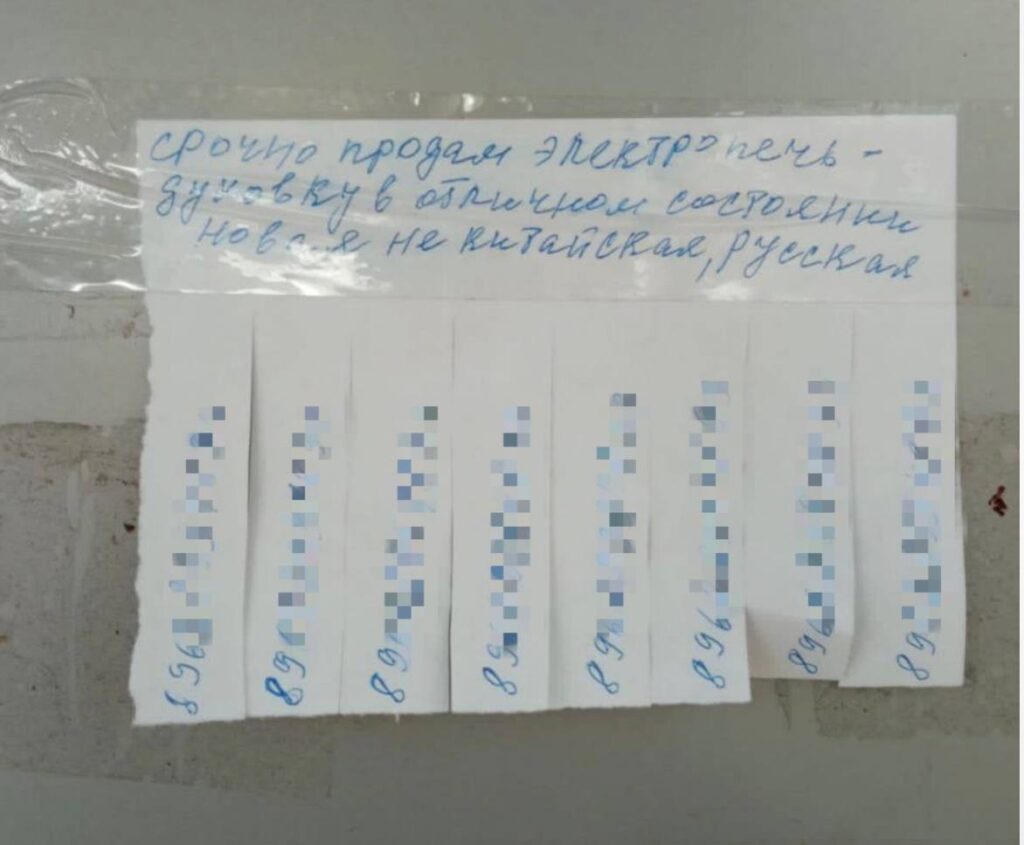 срочно продам электропечь -
духовку в отличном состоянии
новая не китайская, русская
896
896
89
89
896
896
896
89